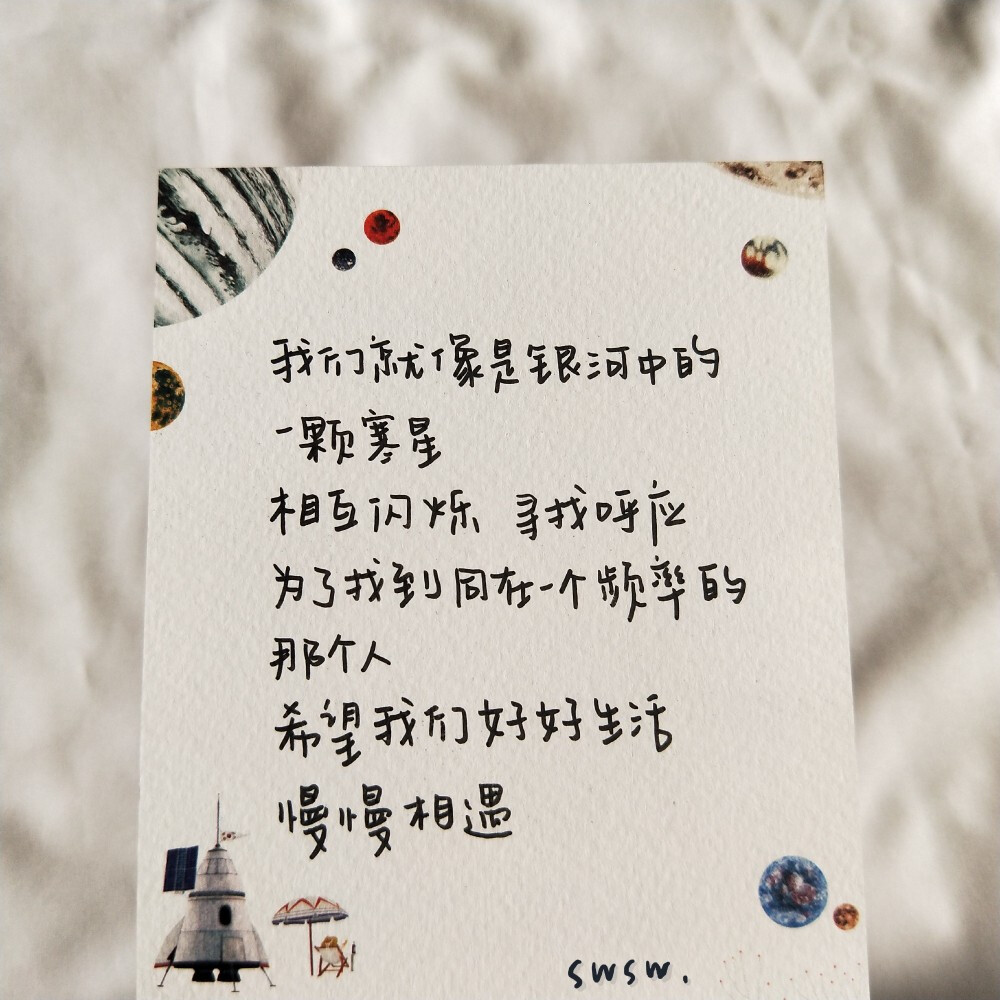 我们就像是银河中的
一颗塞星
相互闪烁 寻找呼应
为了找到同在一个频率的
那个人
希望我们好好生活
慢慢相遇
swsw.